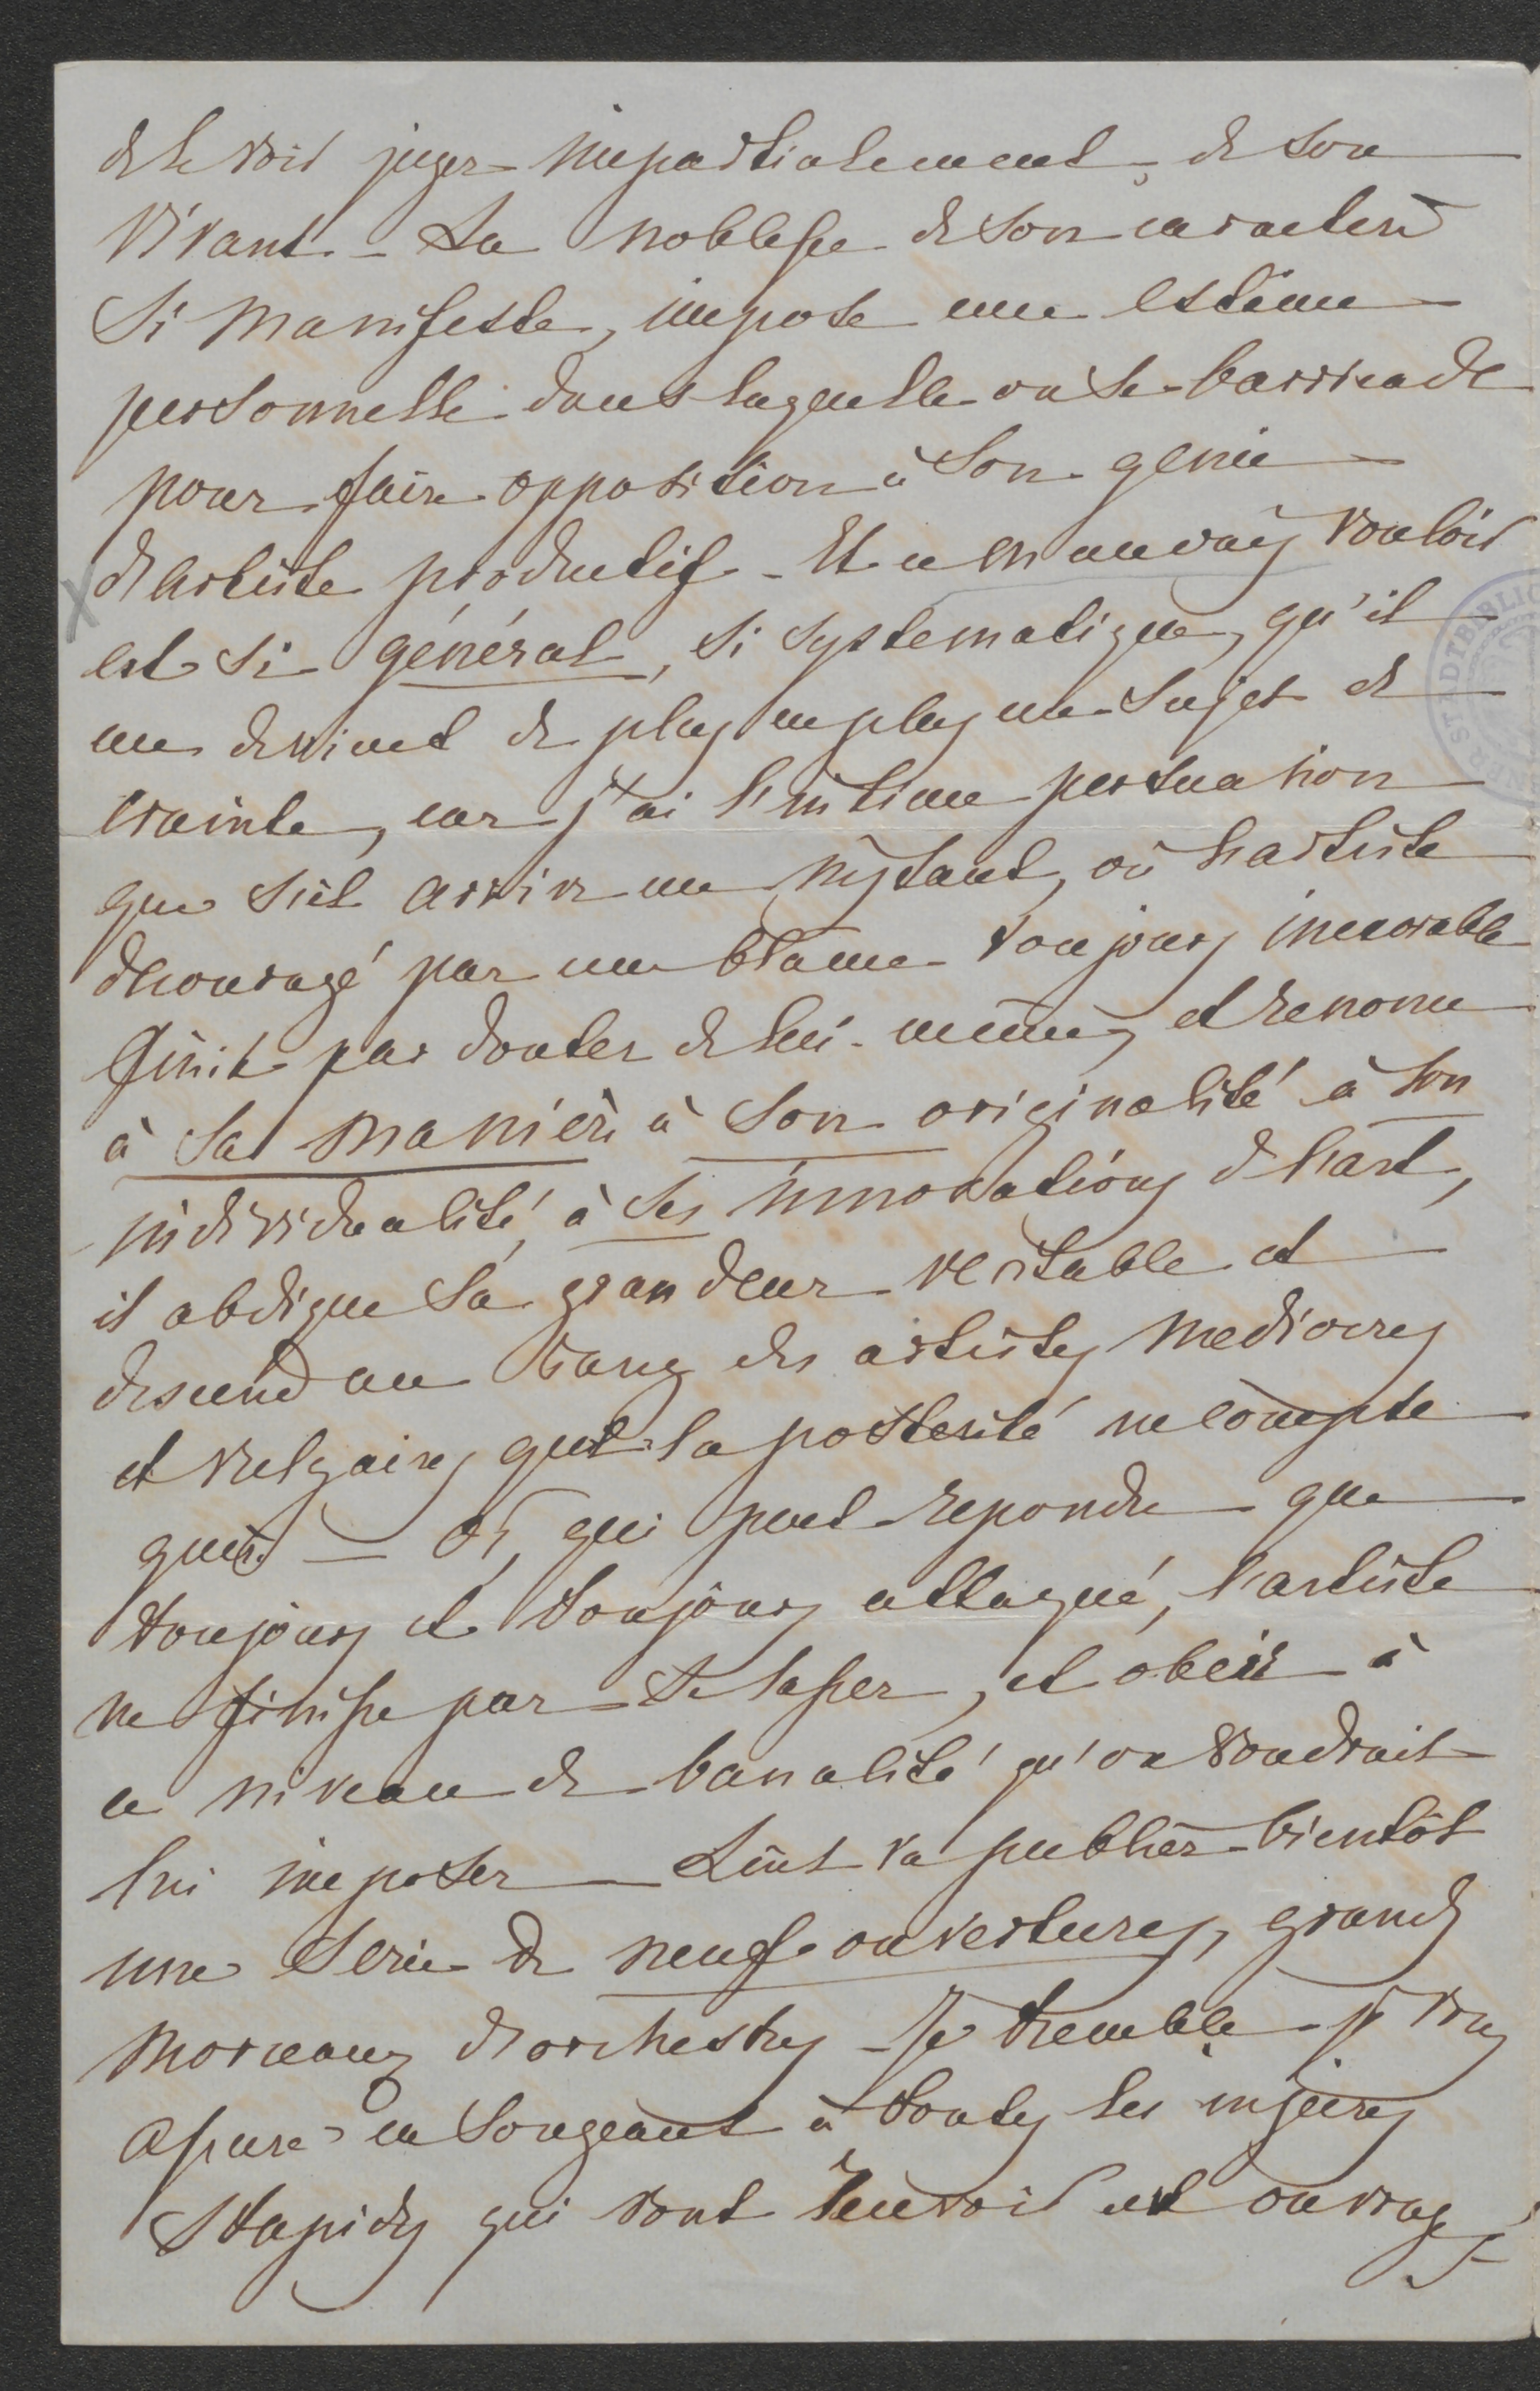 de le voir juger impartialement de son
vivant – La noblesse de son caractere
si manifeste, impose une estime
personnelle dans laquelle on se barricade
pour faire opposition à son genie
d'artiste productif – Et ce mauvais vouloir
est si général, si systematique, qu'il
me devient de plus en plus un sujet de
crainte, car j'ai l'intime persuasion
que s'il arrive un instant, où l'artiste
decouragé par un blâme toujours inexorable
finit par douter de lui-même, et renonce
à sa manière à son originalité à son
individualité, à ses innovations d l'art,
il abdique sa grandeur veritable et
descend au rang des artistes mediocres
et vulgaires que la posterité ne compte
guère – Or, qui peut repondre que
toujours et toujours attaqué, l'artiste
ne finisse par se lasser, et obeir à
ce niveau de banalité qu'on voudrait
lui imposer – Liszt va publier bientôt
une serie de neuf ouvertures, grands
morceaux d'orchestres – Je tremble je vous
assure en songeant à toutes les injures
stupides qui vont recevoir cet ouvrage
STADTBIBLIO